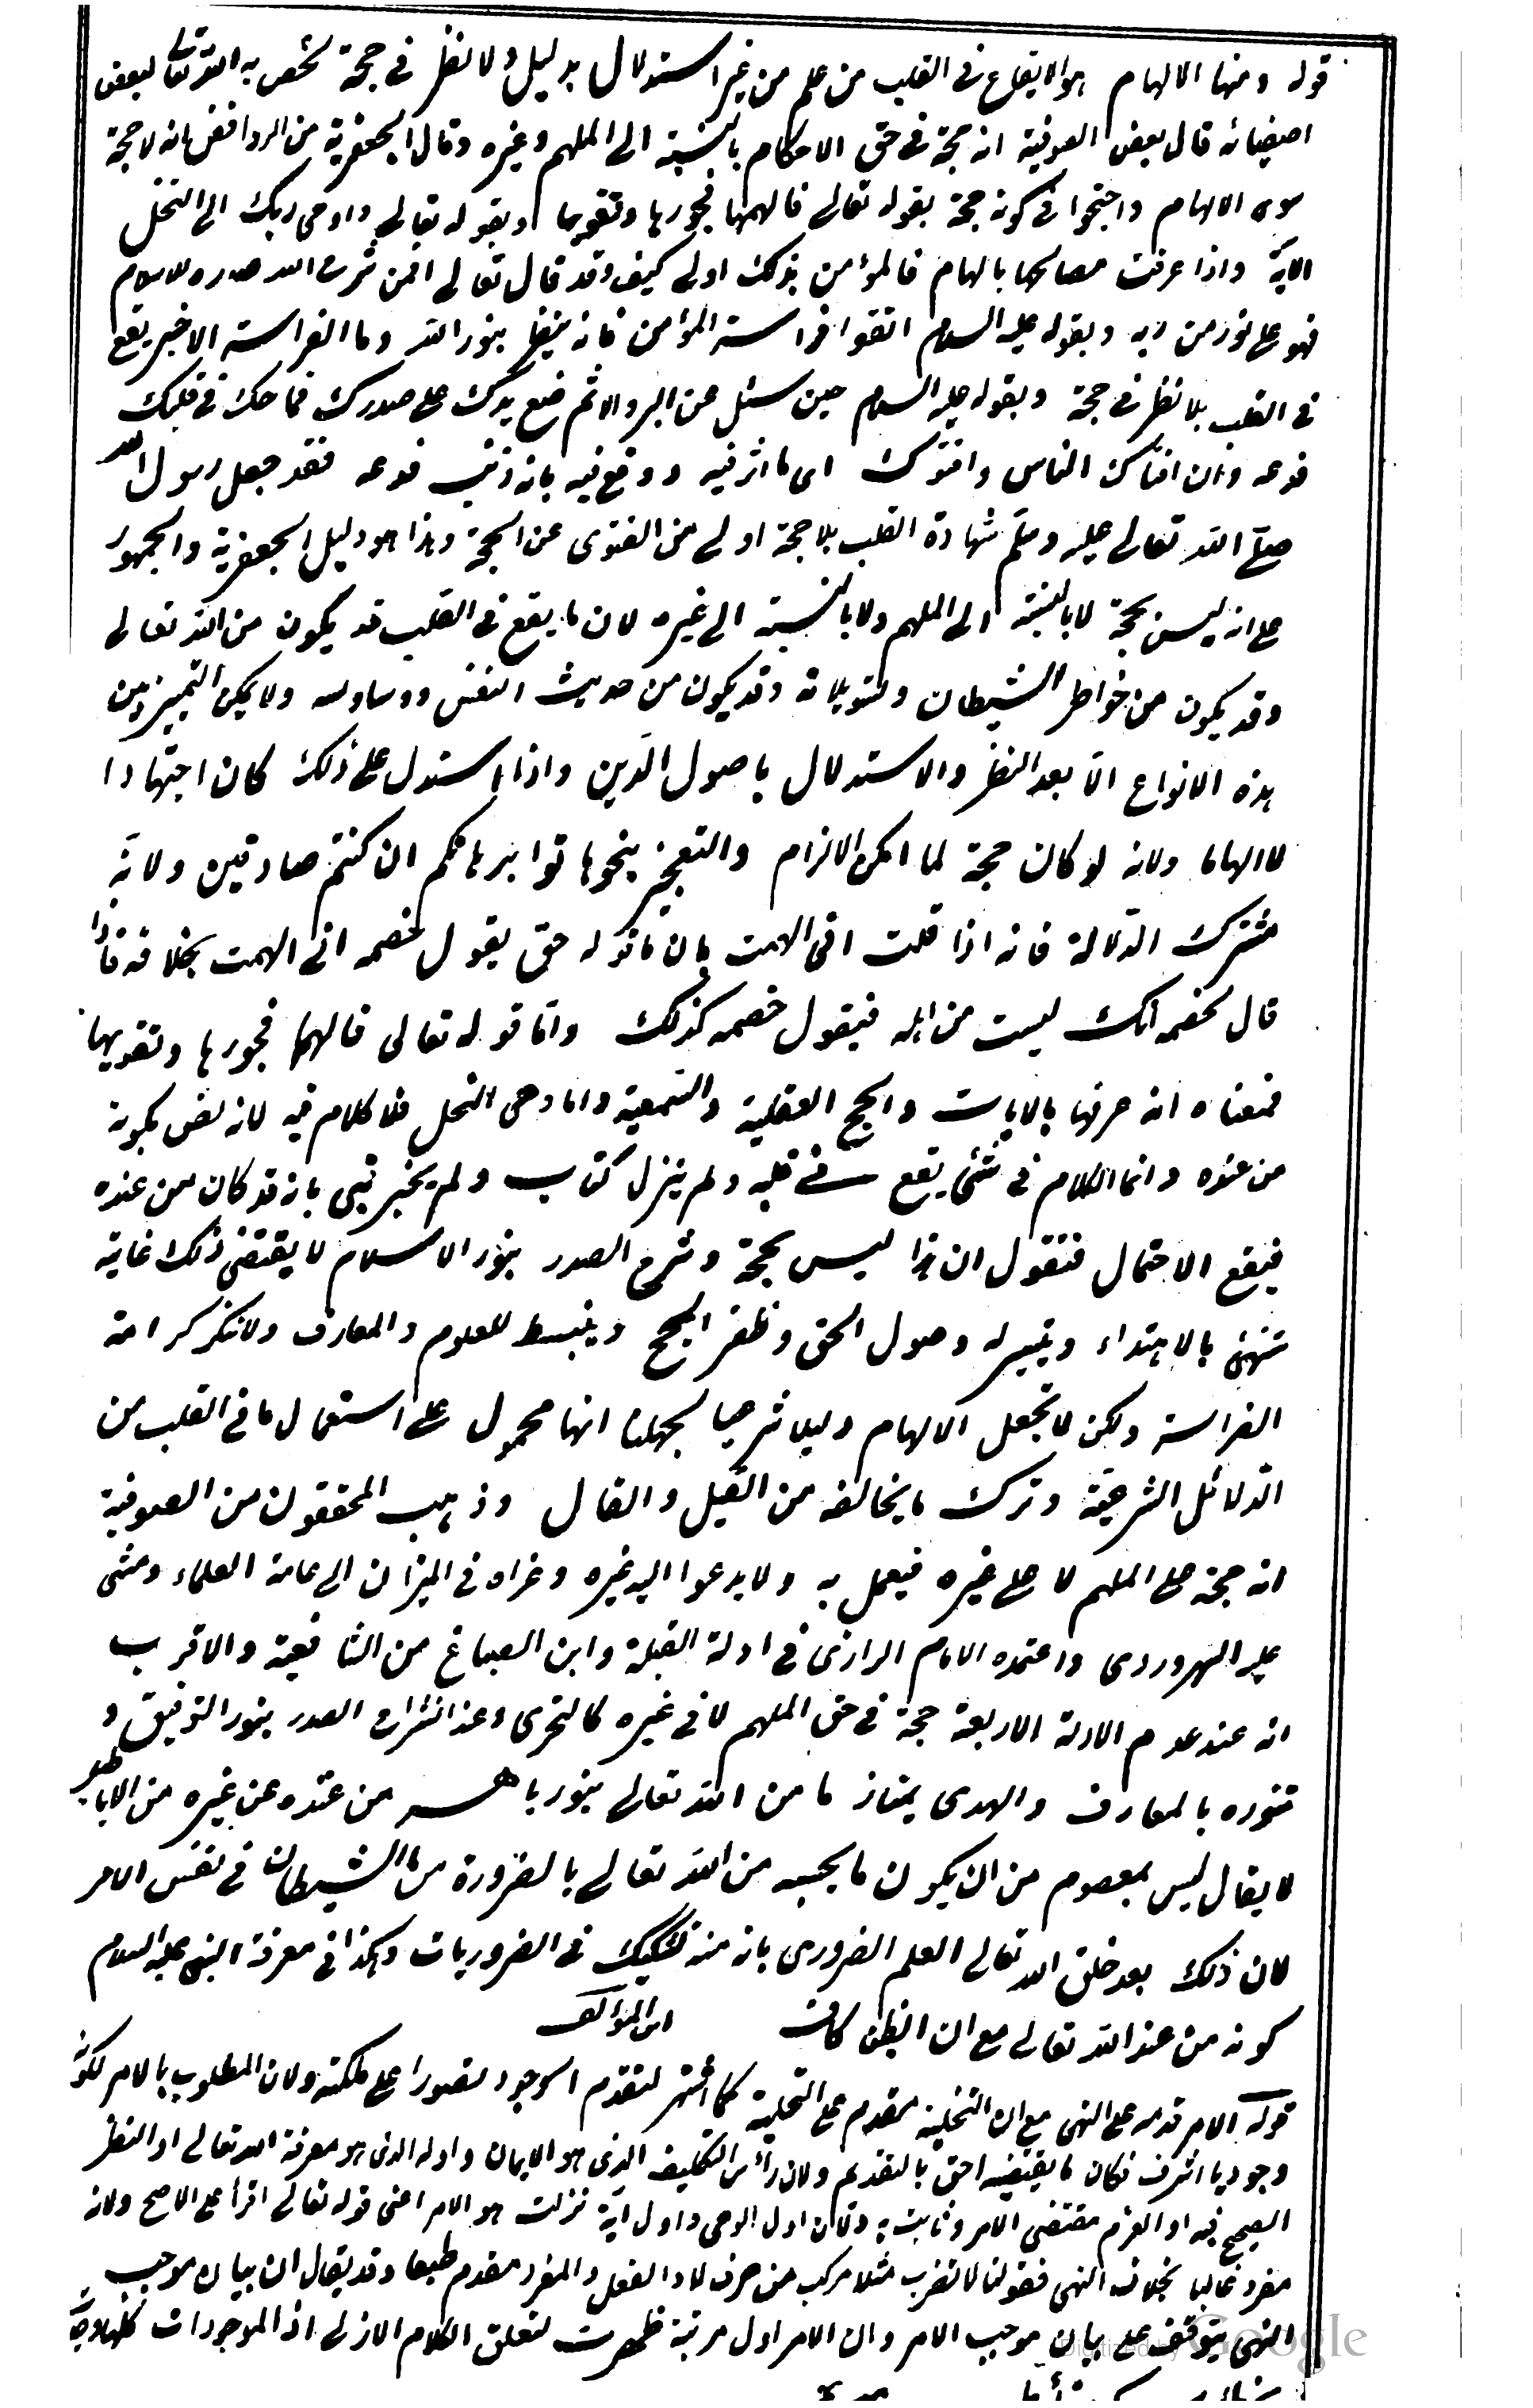 قوله ومنها الالهام هو الايقاع فى القلب من علم من غير استدلال بدليل ولا نظر فى حجة يخص به الله تعالى لبعض
اصفيائه قال بعض الصوفية انه حجة فى حق الاحكام بالنسبة الى الملهم وغيره وقال الجعفرية من الروافض بانه لا حجة
سوى الالهام واحتجوا فى كونه حجة بقوله تعالى فالهمها فجورها وتقويها وبقوله تعالى واوحى ربك الى النحل
الاية واذا عرفت مصالحها بالهام فالمؤمن بذلك اولى كيف وقد قال تعالى افمن شرح الله صدره للاسلام
فهو على نور من ربه وبقوله عليه السلام اتقوا فراسة المؤمن فانه ينظر بنور الله وما الفراسة الا خبر يقع
فى القلب بلا نظر فى حجة وبقوله عليه السلام حين سئل عن البر والاثم ضع يدك على صدرك فما حك فى قلبك
فدعه وان افتاك الناس وافتوك اى ما اثر فيه ووقع فيه بانه ذنب فدعه فقد جعل رسول الله
صلى الله تعالى عليه وسلم شهادة القلب بلا حجة اولى من الفتوى عن الحجة وهذا هو دليل الجعفرية والجمهور
على انه ليس بحجة لا بالنسبة الى الملهم ولا بالنسبة الى غيره لان ما يقع فى القلب قد يكون من الله تعالى
وقد يكون من خواطر الشيطان وتسويلاته وقد يكون من حديث النفس ووساوسه ولا يمكن التمييز بين
هذه الانواع الا بعد النظر والاستدلال باصول الدين واذا استدل على ذلك كان اجتهادا
لا الهاما ولانه لو كان حجة لما امكن الالزام والتعجيز بنحو هاتوا برهانكم ان كنتم صادقين ولانه
مشترك الدلالة فانه اذا قلت انى الهمت بان ما قوله حق يقول خصمه انى الهمت بخلافه فاذا
قال لخصمه انك ليست من اهله فيقول خصمه كذلك واما قوله تعالى فالهمها فجورها وتقويها
فمعناه انه عرفها بالايات والحجج العقلية والسمعية واما وحى النحل فلا كلام فيه لانه نص بكونه
من عنده وانما الكلام فى شئ يقع فى قلبه ولم ينزل كتاب ولم يخبر نبى بانه قد كان من عنده
فيقع الاحتمال فنقول ان هذا ليس بحجة وشرح الصدر بنور الاسلام لا يقتضى ذلك غايته
تنهئ بالاهتداء وتيسر له وصول الحق وظفر الحجج وينبسط للعلوم والمعارف ولا ننكر كرامة
الفراسة ولكن لا نجعل الالهام دليلا شرعيا لجهلنا انها محمول على استعمال ما فى القلب من
الدلائل الشرعية وترك ما يخالفه من القيل والقال وذهب المحققون من الصوفية
انه حجة على الملهم لا على غيره فيعمل به ولا يدعوا اليه غيره وعزاه فى الميزان الى عامة العلماء ومشى
عليه السهروردى واعتمده الامام الرازى فى ادلة القبلة وابن الصباغ من الشافعية والاقرب
انه عند عدم الادلة الاربعة حجة فى حق الملهم لا فى غيره كالتحرى وعند انشراح الصدر بنور التوفيق و
تنوره بالمعارف والهدى يمتاز ما من الله تعالى بنور باهر من عنده عن غيره من الاباطيل
لا يقال ليس بمعصوم من ان يكون ما يحسبه من الله تعالى بالضرورة من الشيطان فى نفس الامر
لان ذلك بعد خلق الله تعالى العلم الضرورى بانه منه تشكيك فى الضروريات وهكذا فى معرفة النبى عليه السلام
كونه من عند الله تعالى مع ان الظن كاف ابن المؤلف
قوله الامر قدمه على النهى مع ان التخلية مقدم على التحلية كما اشتهر لتقدم الوجود تصورا على ملكته ولان المطلوب بالامر لكونه
وجوديا اشرف فكان ما يقتضيه احق بالتقديم ولان رأس التكليف الذى هو الايمان واوله الذى هو معرفة الله تعالى او النظر
الصحيح فيه او العزم مقتضى الامر وثابت به ولان اول الوحى واول آية نزلت هو الامر اعنى قوله تعالى اقرأ على الاصح ولانه
مفرد غالبا بخلاف النهى فقولنا لا تضرب مثلا مركب من حرف لا والفعل والمفرد مقدم طبعا وقد يقال ان بيان موجب
النهى يتوقف على بيان موجب الامر وان الامر اول مرتبة ظهرت لتعلق الكلام الازلى اذ الموجودات كلها وجدت
Digitized by Google